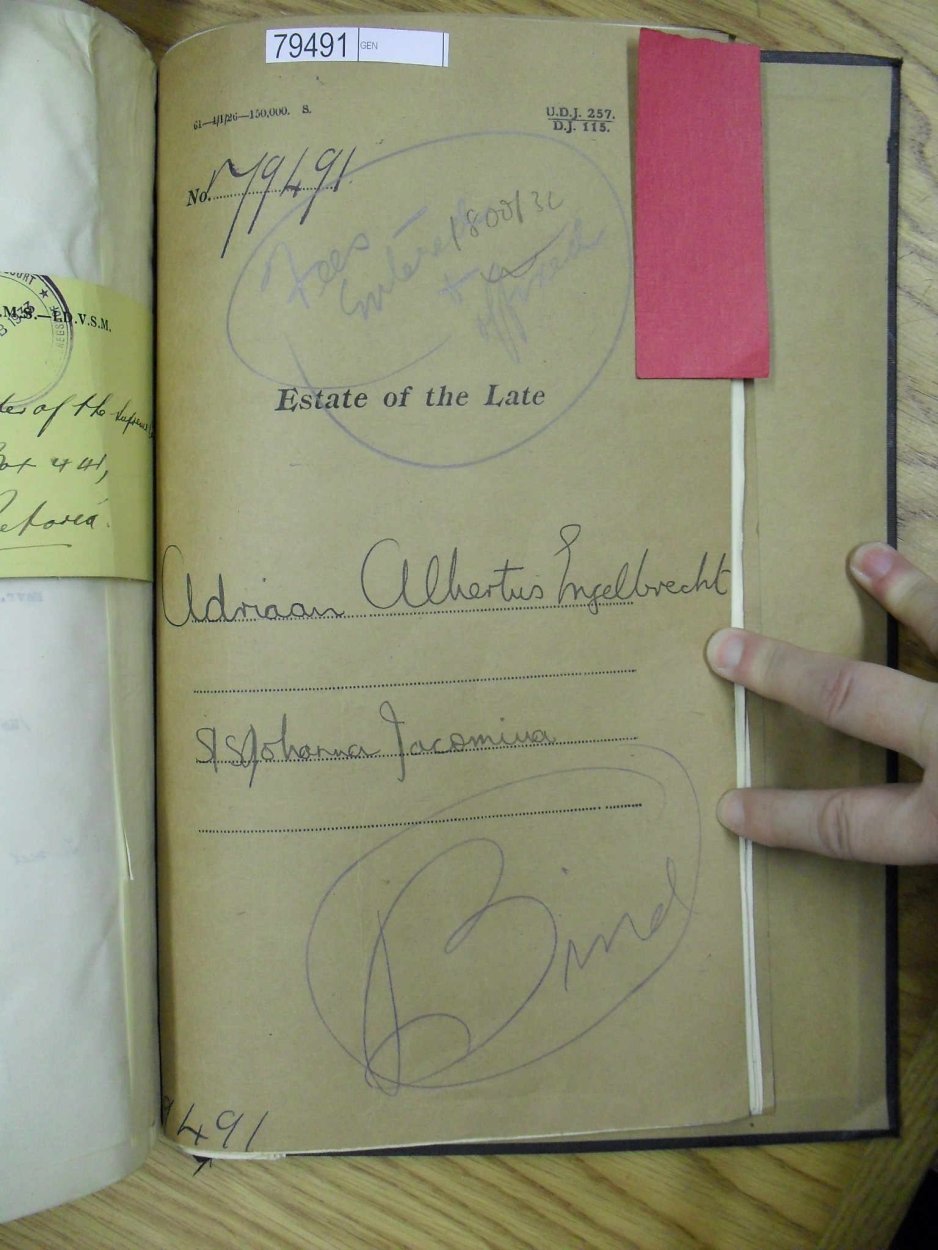 79491 GEN
61—4/1/26—150,000. S.
U.D.J. 257.
D.J. 115.
No. 79491
Fees
1800/32
Estate of the Late
Adriaan Albertus Engelbrecht
S/S Johanna Jacomina
Bind
491
COURT
.M.S.—I.D.V.S.M.
of the
441,